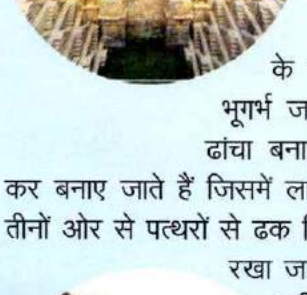 के
भूगर्भ
ढांचा
कर बनाए जाते हैं जिसमें
तीनों ओर से पत्थरों से ढक
रखा